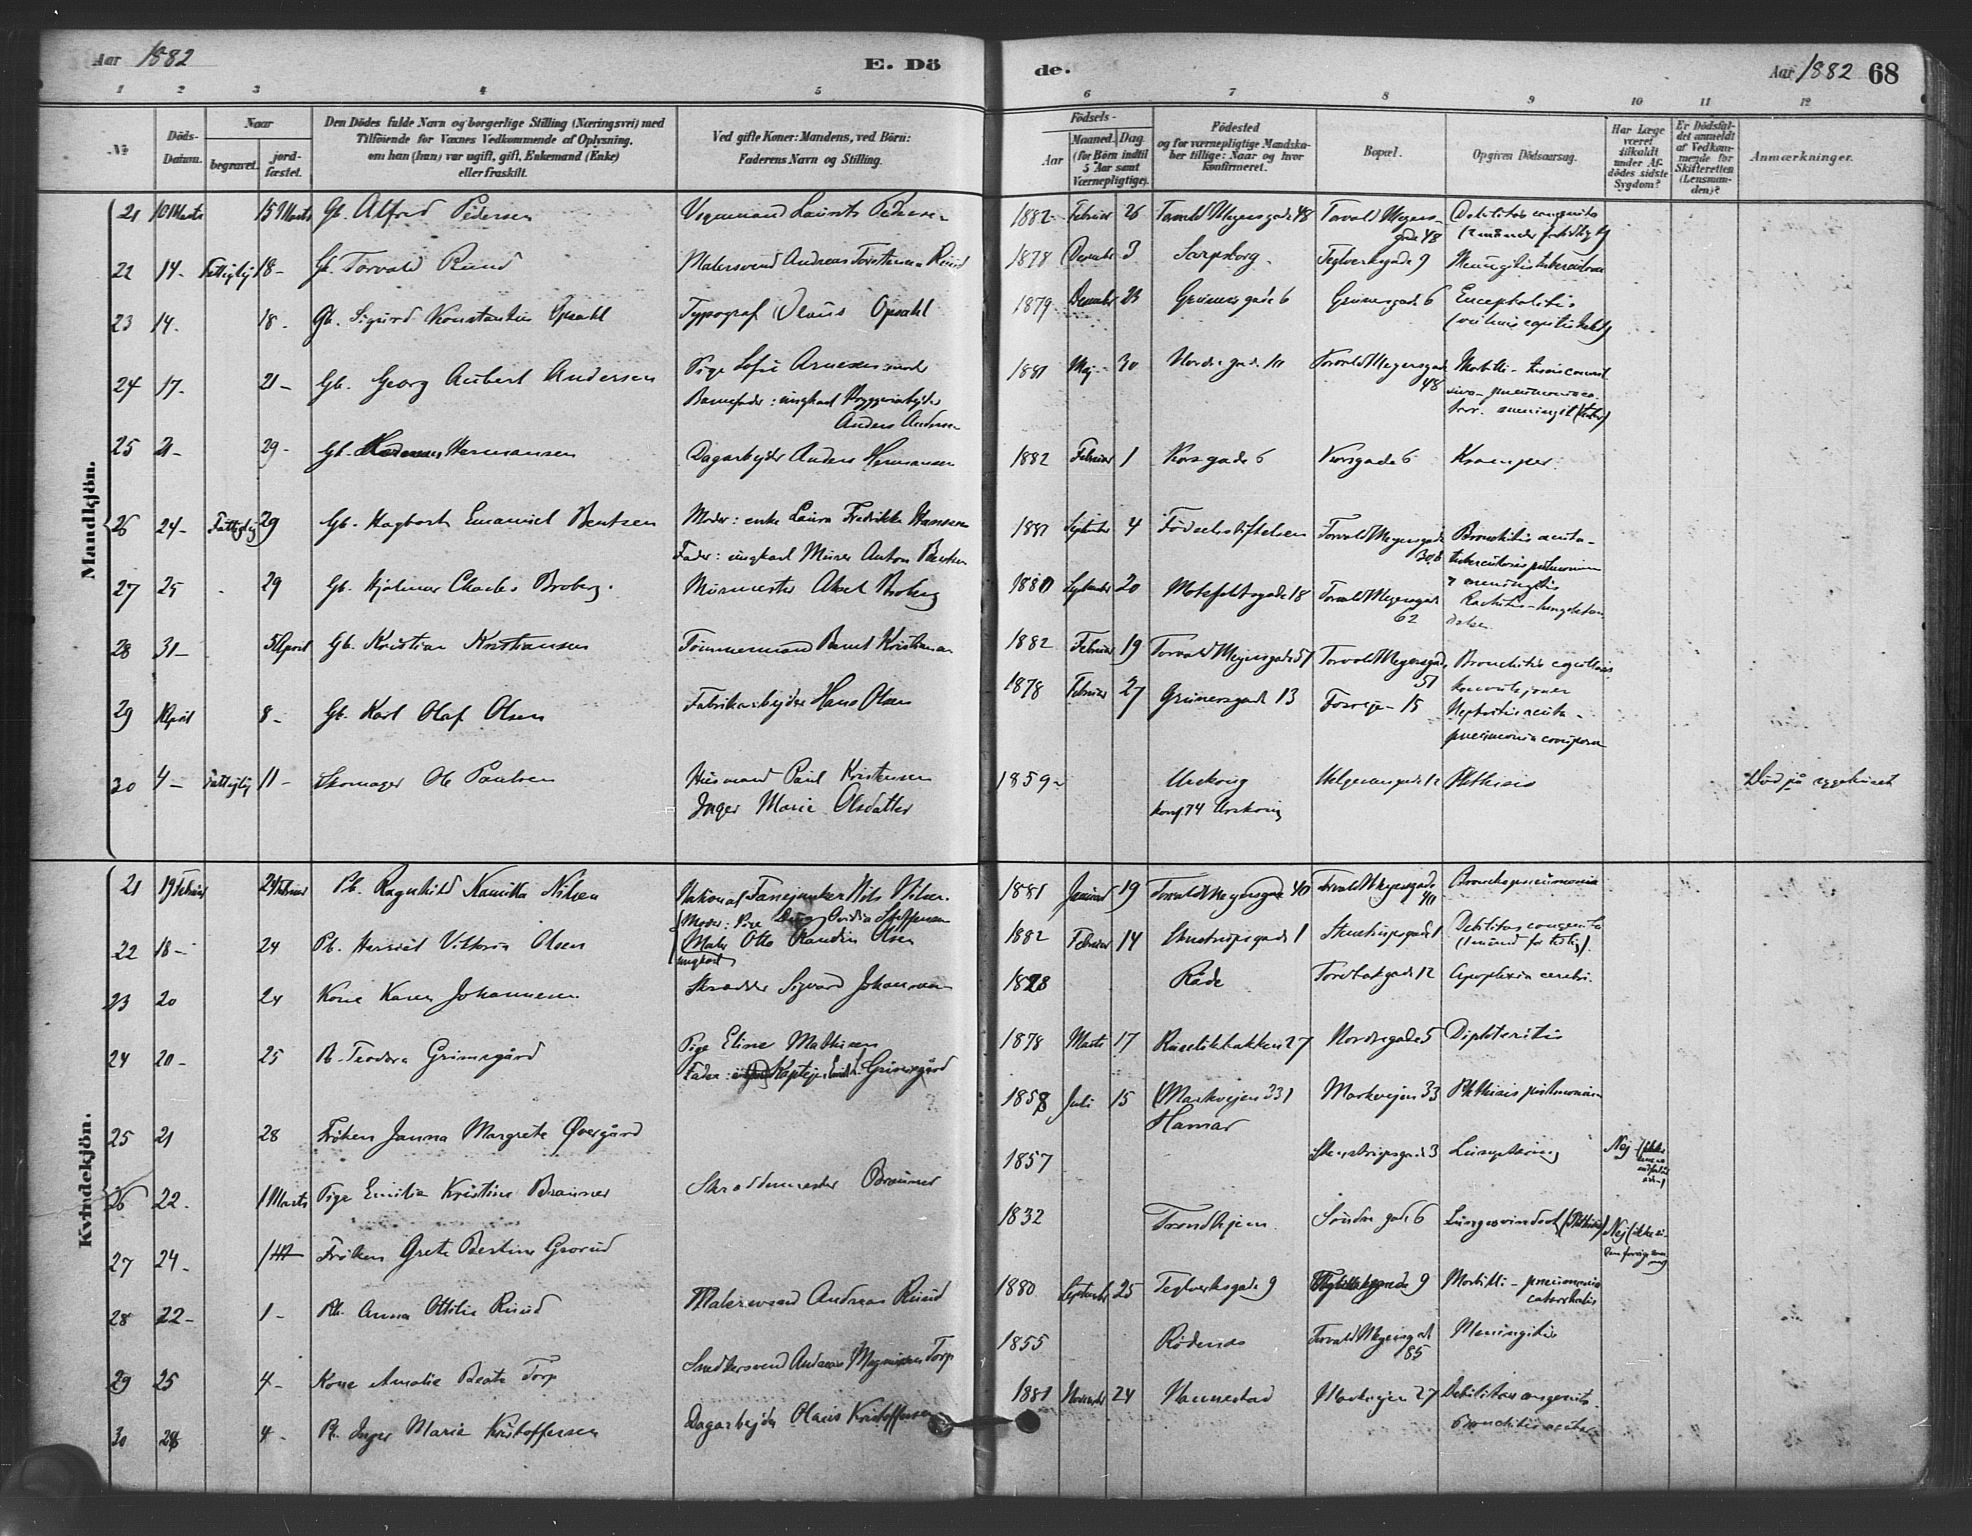 Aar 1882
E. Dö
de.
Aar 1882 68
1 2 3 4 5
6 7 8 9 10 11 12
No.
Döds-Datum.
Naar
begravet.
jord-fæstet.
Den Dödes fulde Navn og borgerlige Stilling (Næringsvei) med
Tilföiende for Voxnes Vedkommende af Oplysning,
om han (hun) var ugift, gift, Enkemand (Enke)
eller fraskilt.
Ved gifte Koner: Mandens, ved Börn:
Faderens Navn og Stilling.
Födsels-
Aar
Maaned. Dag.
(for Börn indtil
5 Aar samt
Værnepligtige).
Födested
og for værnepligtige Mandska-
ber tillige: Naar og hvor
konfirmeret.
Bopæl.
Opgiven Dödsaarsag.
Har Læge
været
tilkaldt
under Af-
dödes sidste
Sygdom?
Er Dödsfal-
det anmeldt
af Vedkom-
mende for
Skifteretten
(Lensman-
den)?
Anmærkninger.
Mandkjön.
21 10 Marts 15 Marts Gb. Alfred Pedersen Vognmand Laurits Pedersen 1882 Februar 26 Torvald Meyersgade 48 Torvald Meyers-gade 48 Debilitas congenita
22 14 - Fattiglig 18 - Gb. Torvald Ruud Malersvend Andreas Torstensen Ruud 1878 3 Sarpsborg. Teglverksgade 9 Meningitis tuberculosa
23 14. 18 - Gb. Sigurd Konstantin Opsahl Typograf Olaus Opsahl 1879 December 23 Grünersgade 6 Grünersgade 6 Encephalitis
24 17. 21 - Gb. Georg Aubert Andersen Pige Sofie Arnesen moder
Barnefader: ungkarl Bryggeriarbejder
Anders Andersen
1881 Maj 30 Nordregade 10 Torvald Meyersgade 48 Morbilli - tussis convul
siva - pneumonia ca-
tarr. meningit (tuber)
25 21 - 29 - Gb. Hermansen Dagarbejder Anders Hermansen 1882 Februar 1 Korsgade 6 Korsgade 6 Kramper.
26 24 - Fattiglig 29 Gb. Hagbart Emanuel Bentsen Moder: enke Laura Fredrikke Hansen
Fader: ungkarl Murer Anton Bentsen
1881 September 4 Fødselsstiftelsen Torvald Meyersgade 30b Bronchitis acuta -
tuberculosis pulmonum
& meningitis
27 25 29 Gb. Hjalmar Charles Broberg. Murmester Aksel Broberg 1880 September 20 Motzfeldtsgade 18 Torvald Meyersgade 62 Rachitis - lungebetæn
delse
28 31 - 5 April Gb. Kristian Kristiansen Tømmermand Bernt Kristiansen 1882 Februar 19 Torvald Meyersgade 51 Torvald Meyersgade 51 Bronchitis capillaris
konvulsjoner
29 April 8 - Gb. Karl Olaf Olsen Fabrikarbejder Hans Olsen 1878 Februar 27 Grünersgade 13 Fossvejen 15 Nephritis acuta -
pneumonia crouposa
30 4 - Fattiglig 11 - Skomager Ole Paulsen Husmand Paul Kristensen
Inger Marie Olsdatter
1859 Urskoug
konf. 74 Urskoug
Helgesensgade 12 Phthisis Død på sygehuset
Kvindekjön.
21 19 Februar 24 Februar Pb. Ragnhild Kamilla Nilsen Nils Nilsen. 1881 Januar 19 Torvald Meyersgade 40 Torvald Meyersgade 40 Bronchopneumonia
22 18 - 24 Pb. Viktoria Olsen Moder: Pige Ovidia Steffensen
Maler Otto Olsen
ungkarl
1882 Februar 14 Stenstrupsgade 1 Stenstrupsgade 1 Debilitas congenita
23 20 24 Kone Karen Johannesen Skrædder Sigvard Johannesen 1828 Råde Toftesgade 12 Apoplexia cerebri.
24 20 - 25 Pb. Teodora Grimsgård Pige Eline Mathisen
Fader: Kaptejn Grimsgård
1878 Marts 17 Ruseløkbakken 27 Nordregade 5 Diphteritis
25 21 28 Frøken Janna Margrete Øvergård 1858 Juli 15 (Markvejen 33)
Hamar
Markvejen 33 Phthisis pulmonum
26 22. 1 Marts Pige Emilie Kristine Brauner Skræddermester Brauner 1857 Stenstrupsgade 3 Lungetæring Nej
27 24 - 1 Frøken Grete Bertine Grorud 1832 Trondhjem. Søndre gade 6 Lungesvindsot (Phthisis) Nej
28 22 - 1 - Pb. Anna Ottilie Ruud Malersvend Andreas Ruud 1880 September 25 Teglverksgade 9 9 Morbilli - pneumonia
catarrhalis
29 25 4 - Kone Amalie Beate Torp Snedkersvend Andreas Magnussen Torp 1855 Rødenæs Torvald Meyersgade 85 Meningitis
30 28 4 - Pb. Inger Marie Kristoffersen Dagarbejder Olaus Kristoffersen 1881 November 24 Hannestad Markvejen 27 Debilitas congenita.
Bronchitis acuta